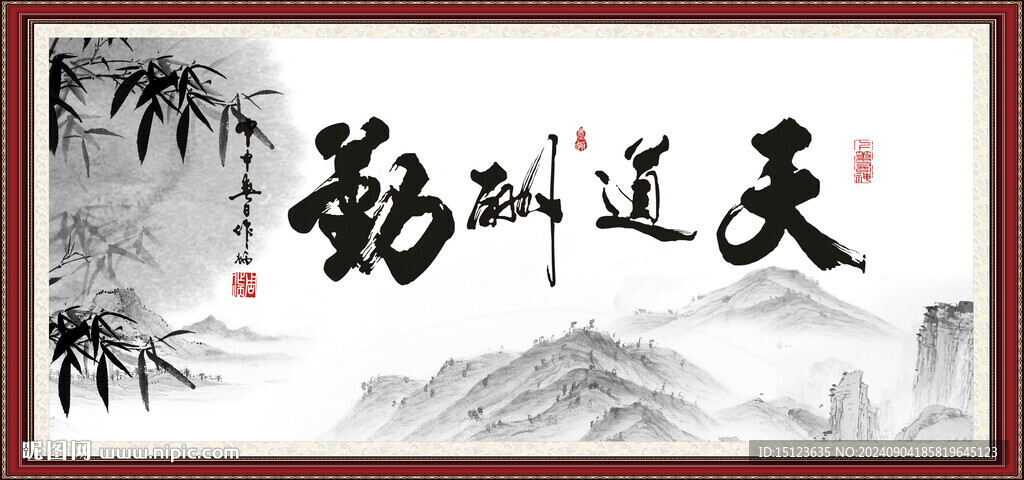 天道酬勤
昵图网 www.nipic.com
ID:15123635 NO:20240904185819645123